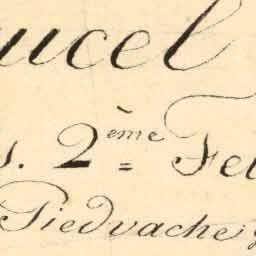 ucel
s. 2ème Fel
Piedvache